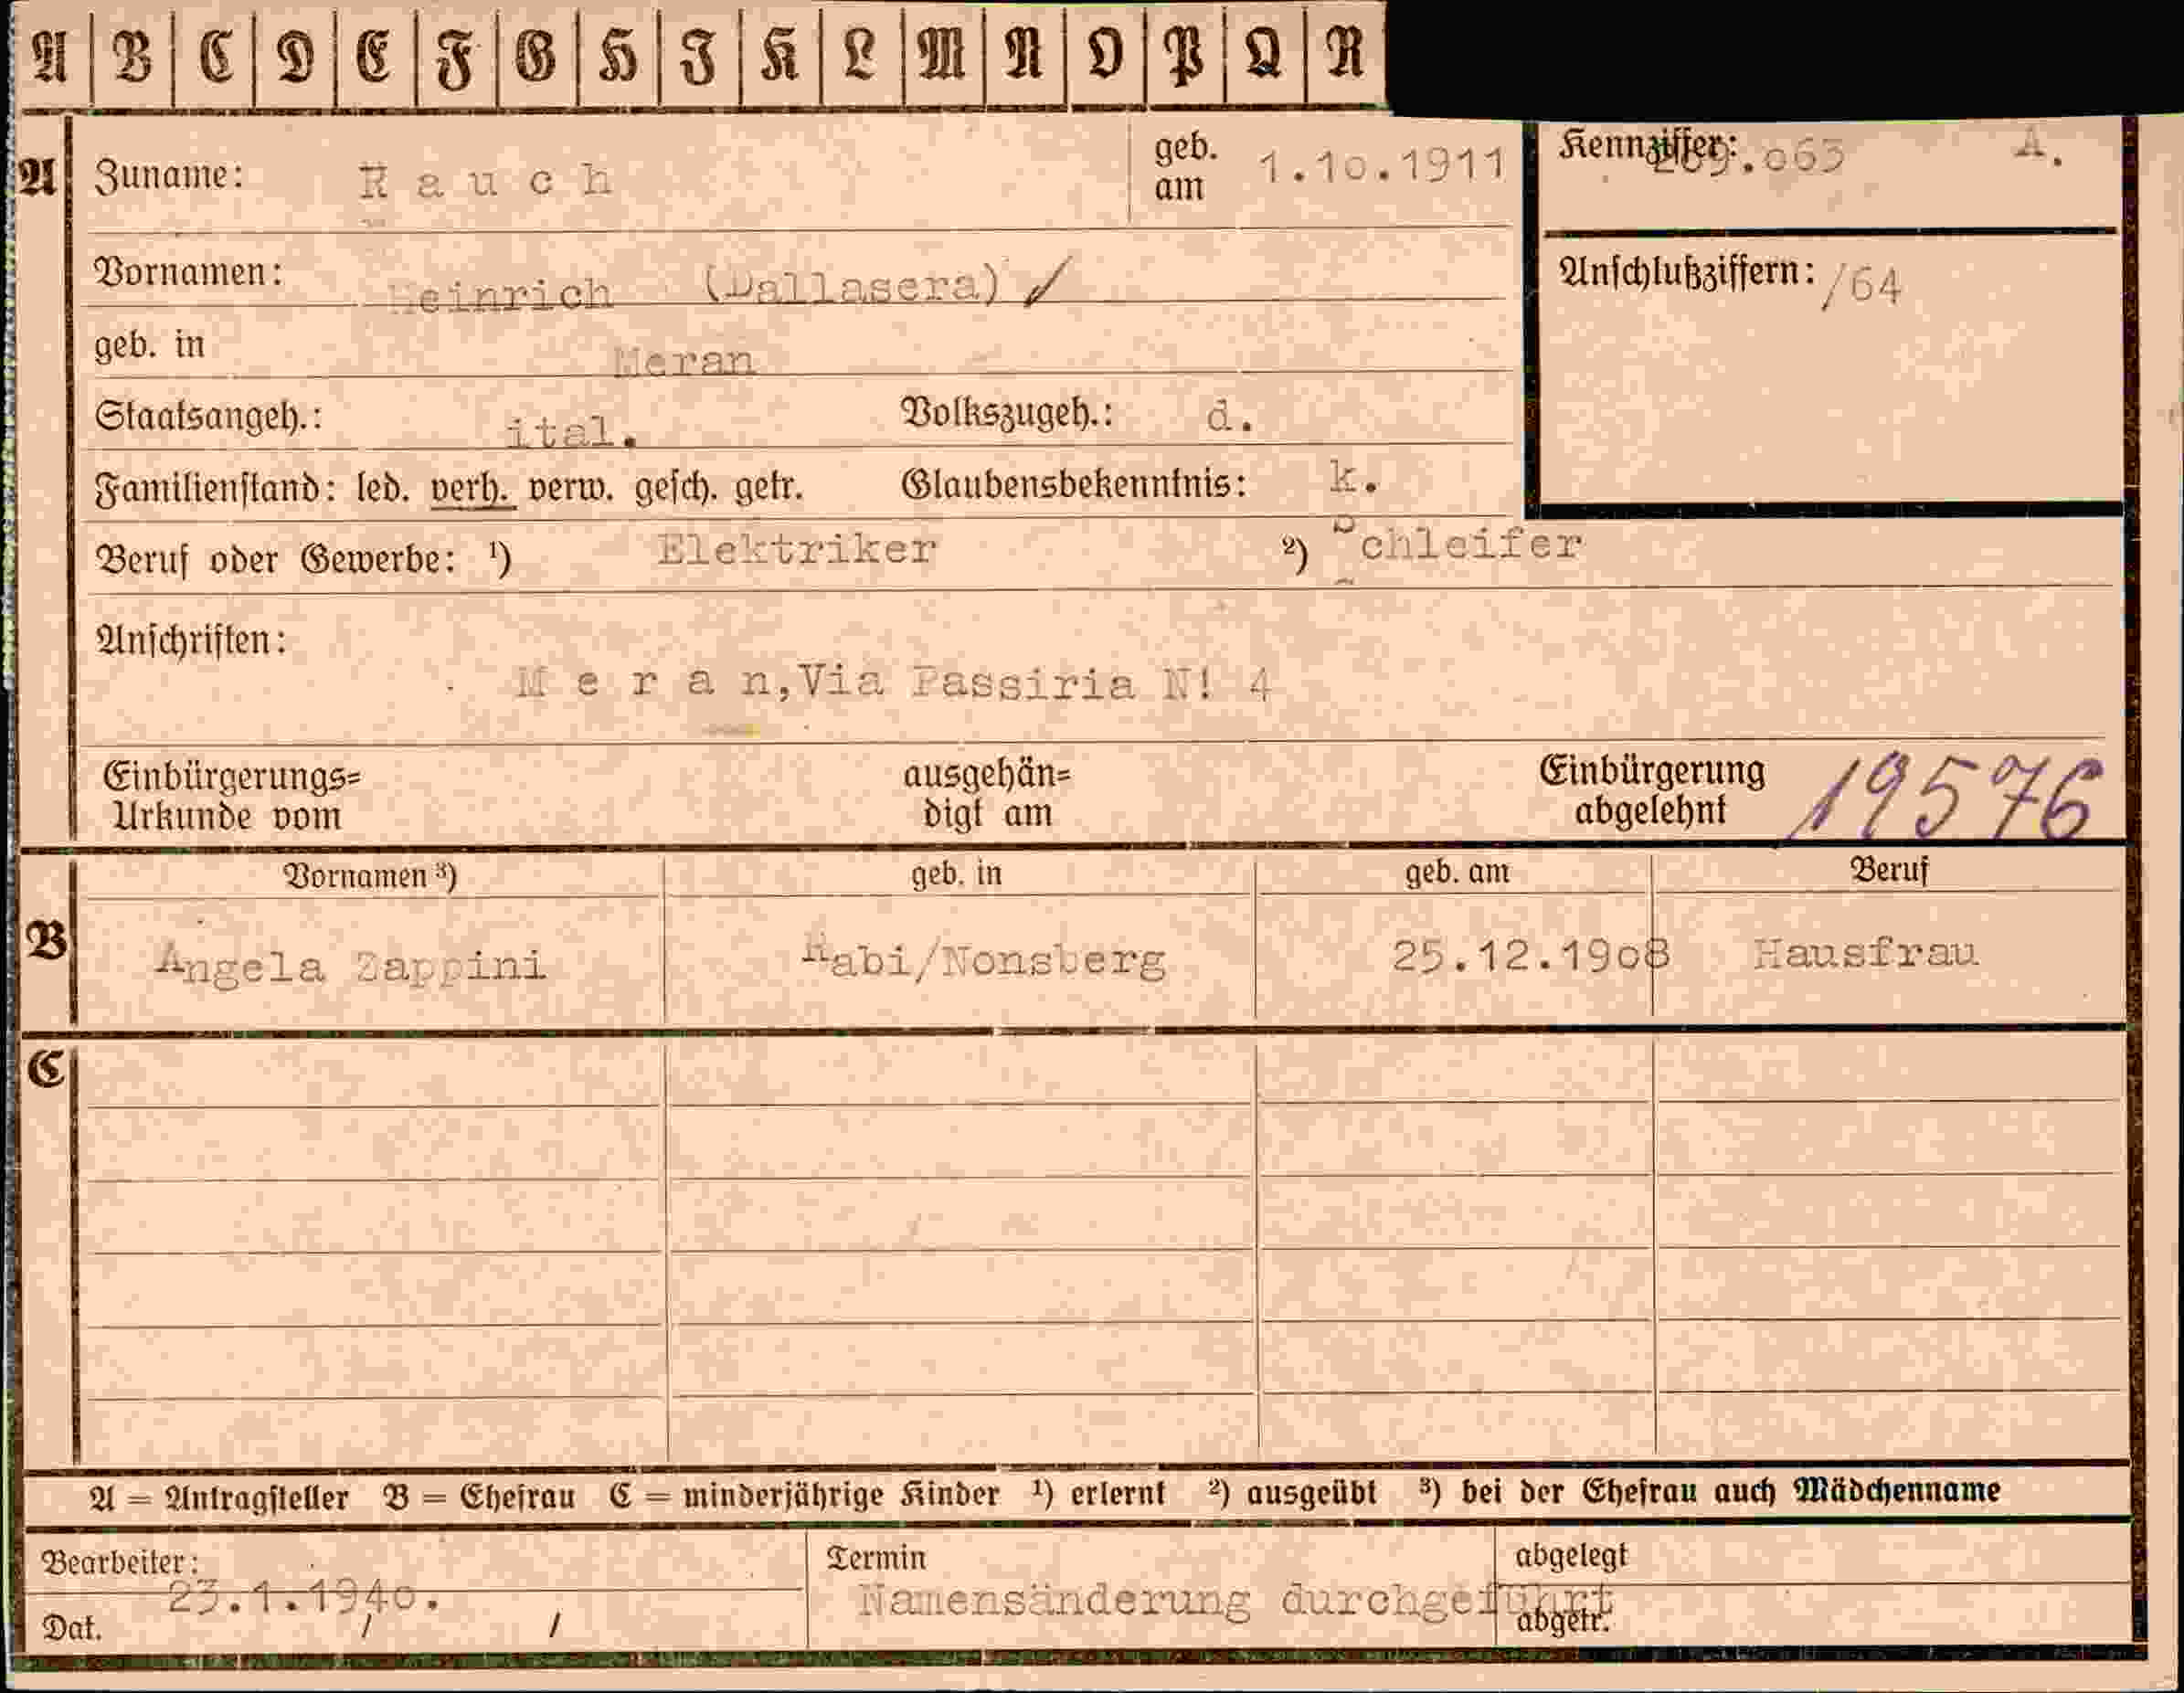 A B C D E F G H I K L M N O P Q R
A Zuname: Rauch geb. am 1.10.1911 Kennziffer: 209.063 A.
Vornamen: Heinrich (Dallasera) / Anschlußziffern: /64
geb. in Meran
Staatsangeh.: ital. Volkszugeh.: d.
Familienstand: led. verh. verw. gesch. getr. Glaubensbekenntnis: k.
Beruf oder Gewerbe: ¹) Elektriker ²) Schleifer
Anschriften:
Meran, Via Passiria N! 4
Einbürgerungs= ausgehän= Einbürgerung 19576
Urkunde vom digt am abgelehnt
Vornamen ³) geb. in geb. am Beruf
B Angela Zappini /Nonsberg 25.12.1908 Hausfrau
C
A = Antragsteller B = Ehefrau C = minderjährige Kinder ¹) erlernt ²) ausgeübt ³) bei der Ehefrau auch Mädchenname
Bearbeiter: Termin abgelegt
23.1.1940. Namensänderung durchgeführt
Dat. / / abgetr.